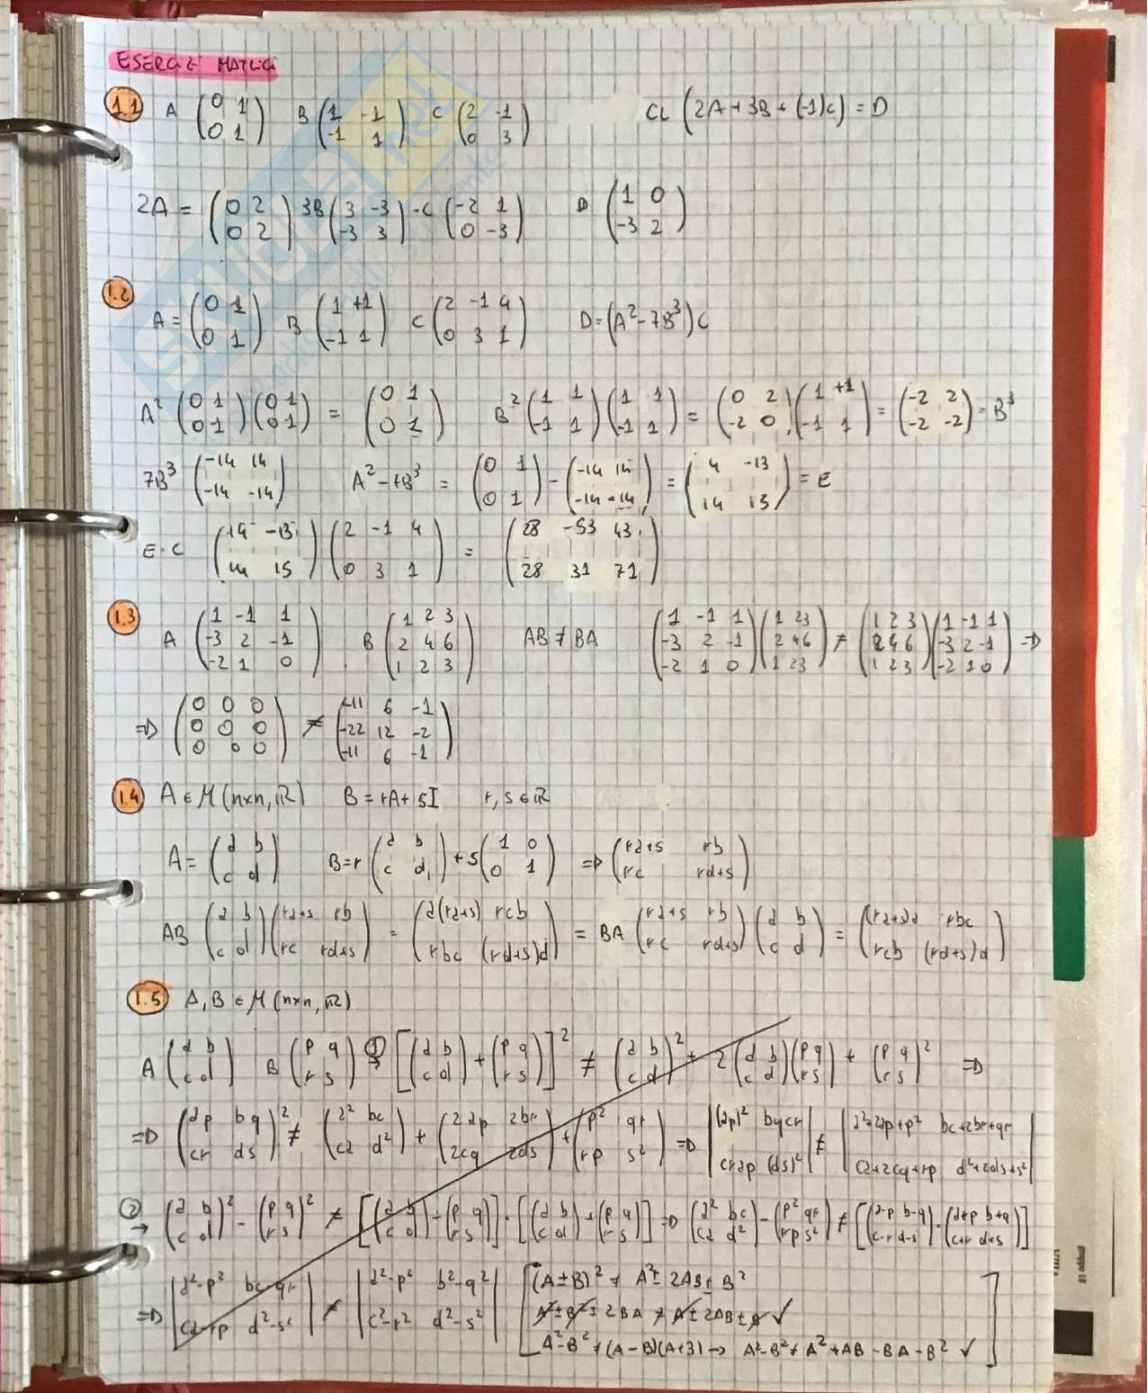 ESERCIZI MATRICI
1.1 A (0 1 / 0 1) B (1 -1 / -1 1) C (2 -1 / 0 3) CL (2A+3B+(-1)C) = D
2A = (0 2 / 0 2) 3B (3 -3 / -3 3) -C (-2 1 / 0 -3) D (1 0 / -3 2)
1.2 A = (0 1 / 0 1) B (1 +1 / -1 1) C (2 -1 4 / 0 3 1) D = (A²-7B³)C
A² (0 1 / 0 1)(0 1 / 0 1) = (0 1 / 0 1) B² (1 1 / -1 1)(1 1 / -1 1) = (0 2 / -2 0)(1 +1 / -1 1) = (-2 2 / -2 -2) = B³
7B³ (-14 14 / -14 -14) A²-7B³ = (0 1 / 0 1) - (-14 14 / -14 -14) = (4 -13 / 14 15) = E
E·C (14 -13 / 14 15)(2 -1 4 / 0 3 1) = (28 -53 43 / 28 31 71)
1.3 A (1 -1 1 / -3 2 -1 / -2 1 0) B (1 2 3 / 2 4 6 / 1 2 3) AB ≠ BA (1 -1 1 / -3 2 -1 / -2 1 0)(1 2 3 / 2 4 6 / 1 2 3) ≠ (1 2 3 / 2 4 6 / 1 2 3)(1 -1 1 / -3 2 -1 / -2 1 0) =>
=> (0 0 0 / 0 0 0 / 0 0 0) ≠ (-11 6 -1 / -22 12 -2 / -11 6 -1)
1.4 A ∈ M(n×n, ℝ) B = rA + sI r, s ∈ ℝ
A = (a b / c d) B = r (a b / c d) + s (1 0 / 0 1) => (ra+s rb / rc rd+s)
AB (a b / c d)(ra+s rb / rc rd+s) = (a(ra+s) rcb / rbc (rd+s)d) = BA (ra+s rb / rc rd+s)(a b / c d) = ((ra+s)a rbc / rcb (rd+s)d)
1.5 A, B ∈ M(n×n, ℝ)
A (a b / c d) B (p q / r s) ① [(a b / c d) + (p q / r s)]² ≠ (a b / c d)² + 2 (a b / c d)(p q / r s) + (p q / r s)² =>
=> (ap bq / cr ds)² ≠ (a² bc / ca d²) + (2ap 2br / 2cq 2ds) + (p² qr / rp s²) => |(ap)² bqcr / crap (ds)²| ≠ |a²+2ap+p² bc+2br+qr / ca+2cq+rp d²+2ds+s²|
② → (a b / c d)² - (p q / r s)² ≠ [(a b / c d) - (p q / r s)]·[(a b / c d) + (p q / r s)] => (a² bc / ca d²) - (p² qr / rp s²) ≠ [(a-p b-q / c-r d-s)·(a+p b+q / c+r d+s)]
=> |a²-p² bc-qr / ca-rp d²-s²| ≠ |a²-p² b²-q² / c²-r² d²-s²| [(A±B)² ≠ A² ± 2AB ± B²
A²-B² ≠ (A-B)(A+B) → A²-B² ≠ A²+AB-BA-B² ✓]